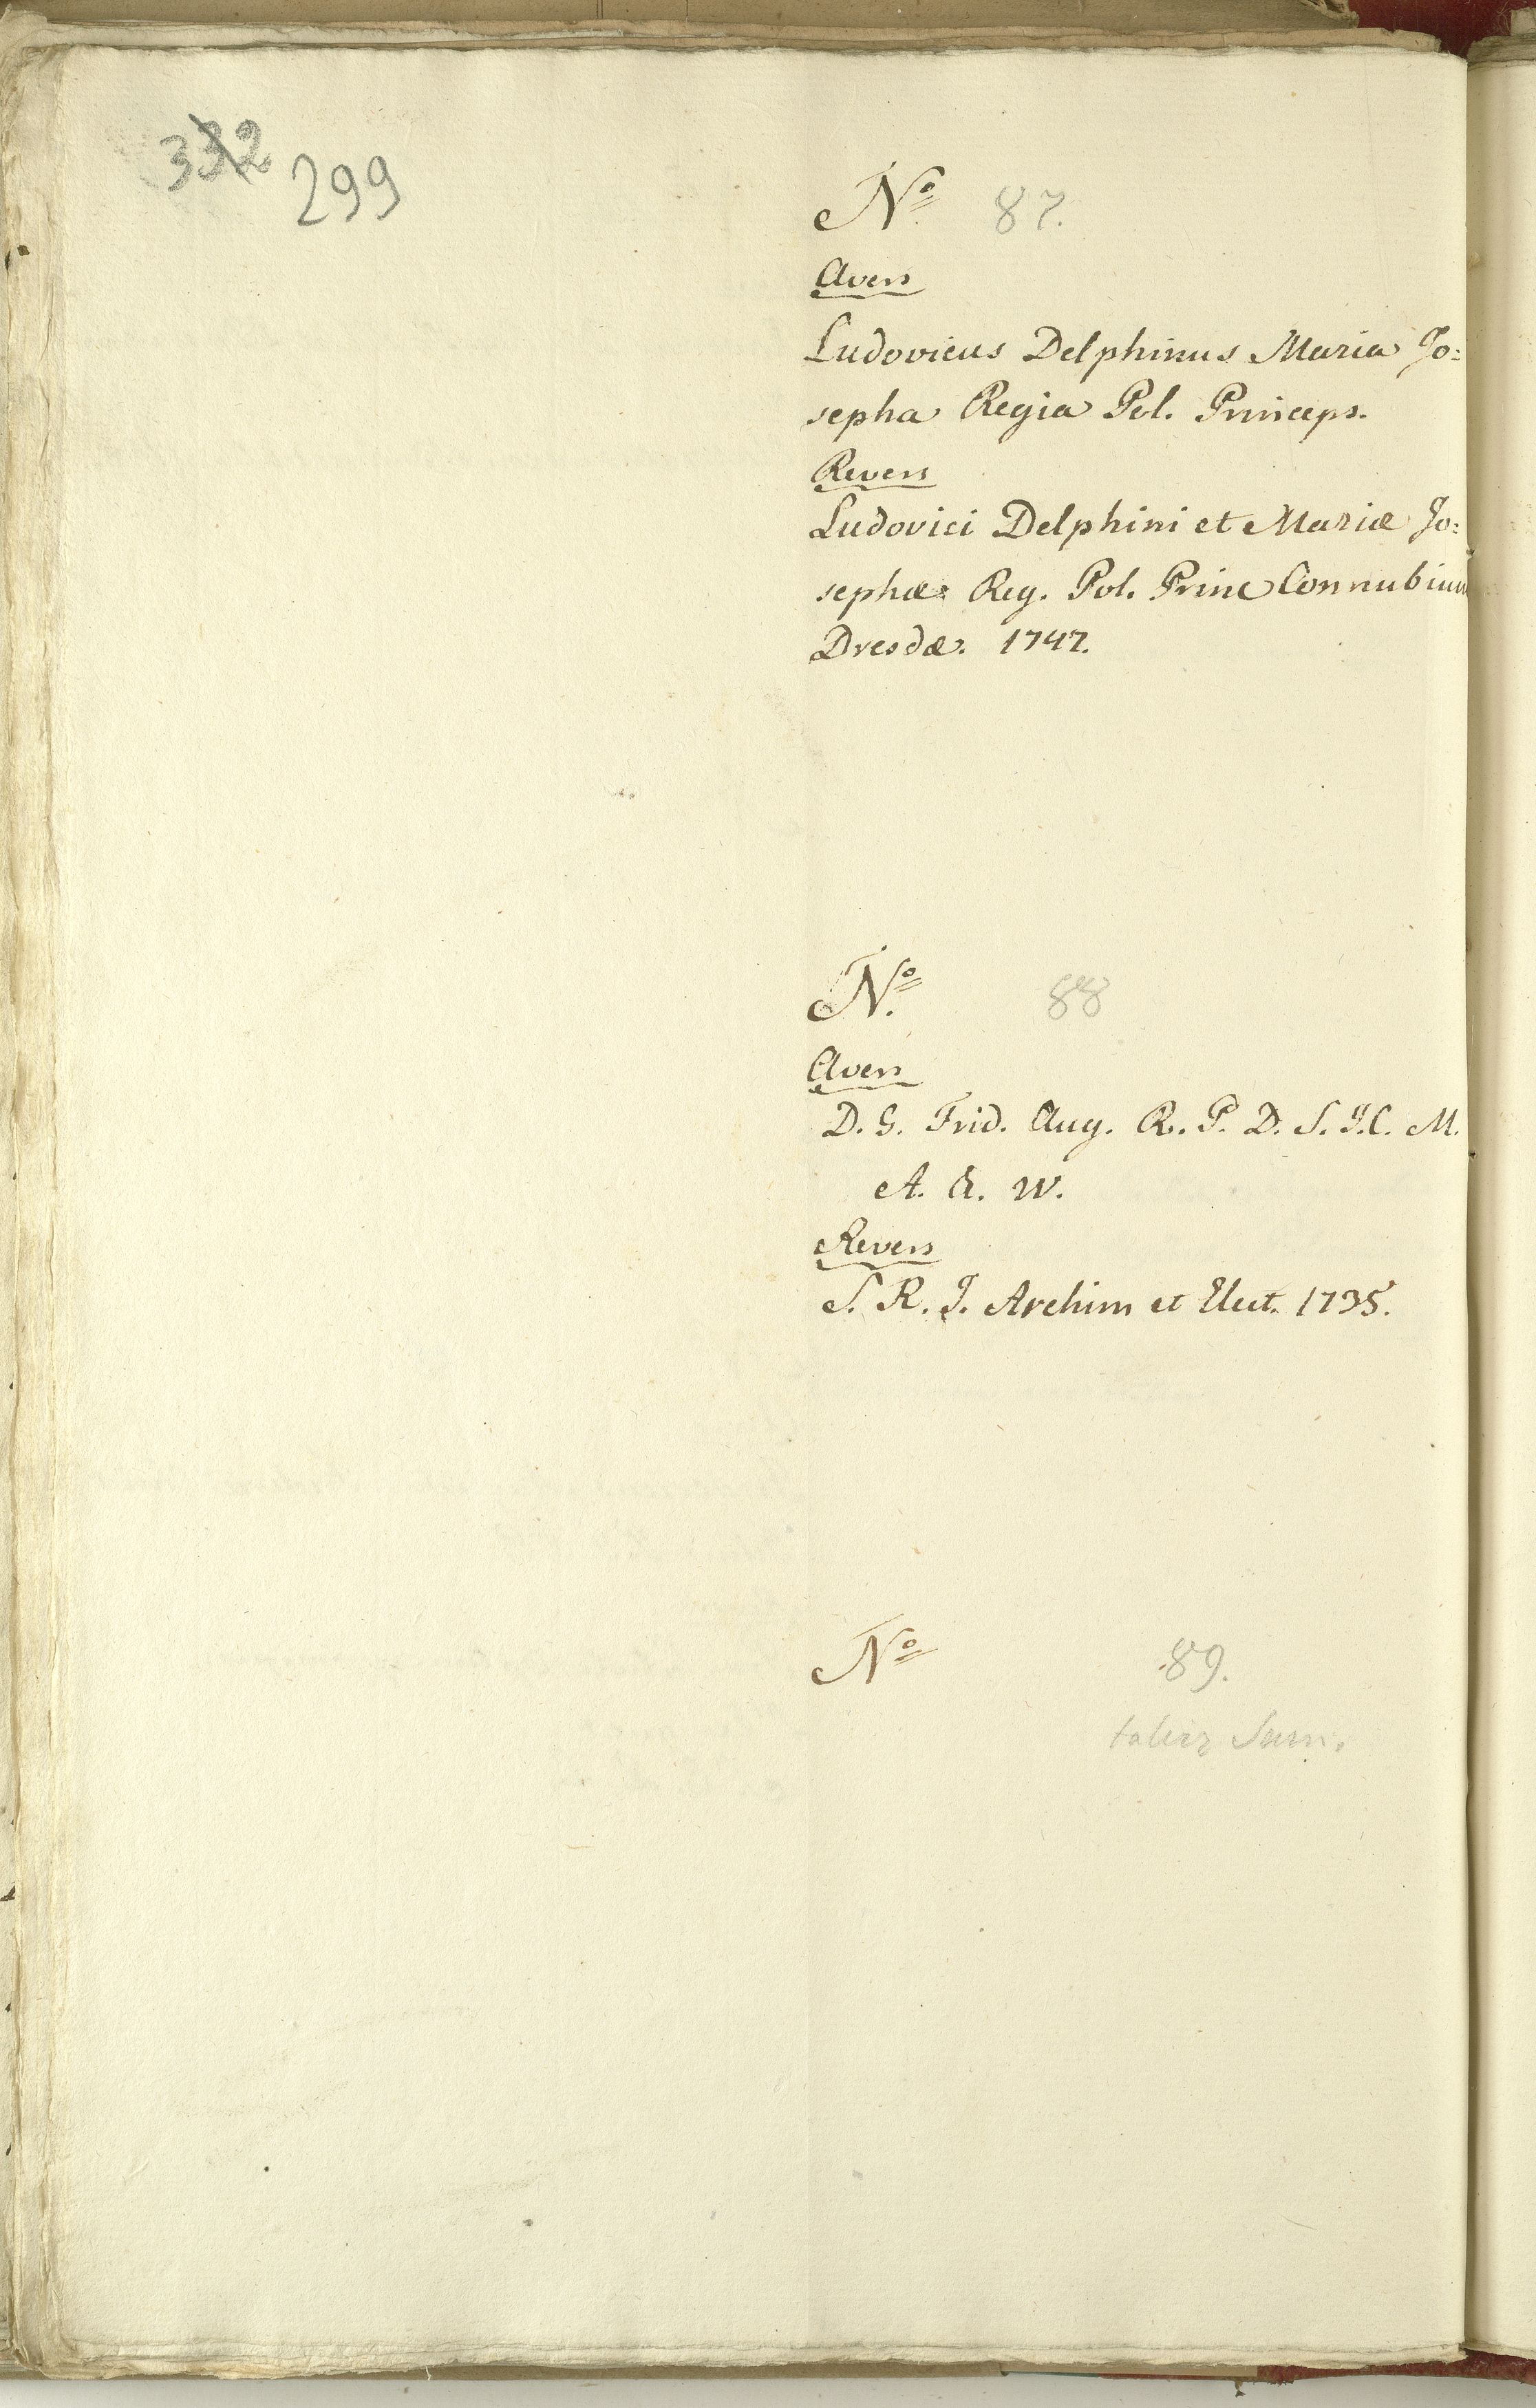 332
299
Nº 87.
Avers
Ludovicus Delphinus Maria Jo:
sepha Regia Pol. Princeps.
Revers
Ludovici Delphini et Mariæ Jo:
sephæ Reg. Pol. Princ Connubium
Dresdæ. 1747.
Nº. 88
Avers
D. G. Frid. Aug. R. P. D. S. J. C. M.
A. & W.
Revers
S. R. J. Archim et Elect. 1735.
Nº 89.